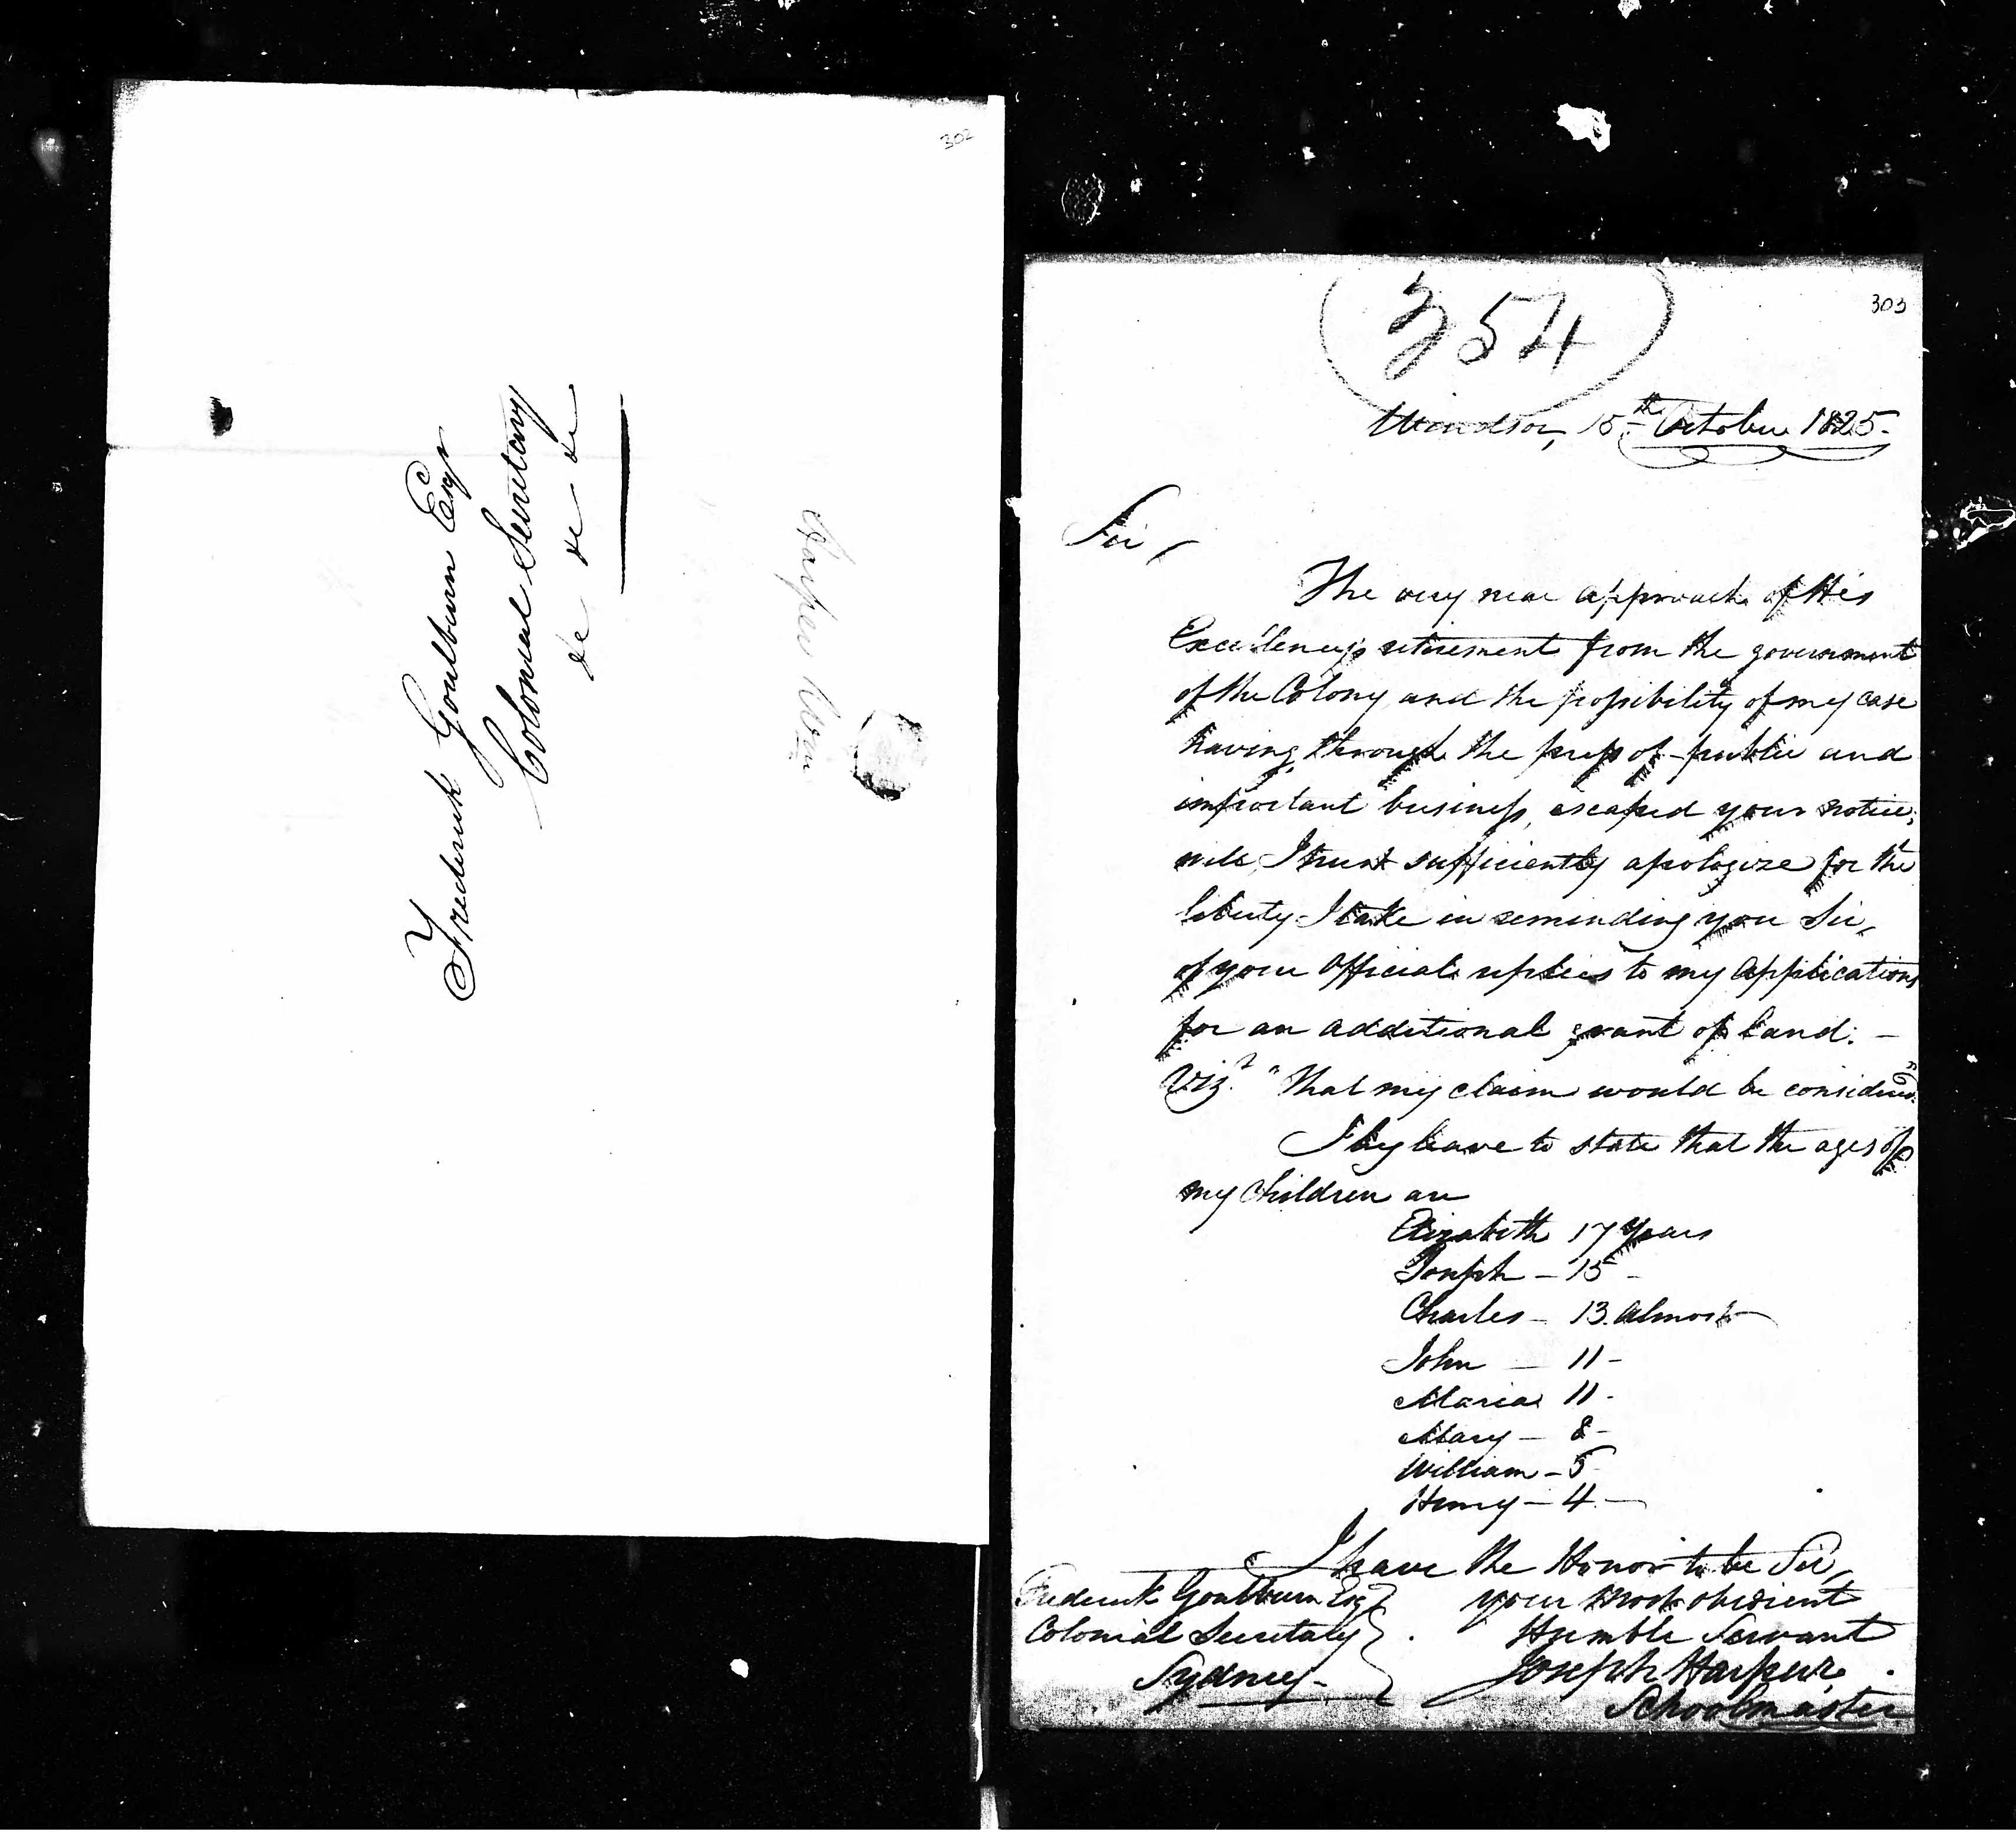 302
Frederick Goulburn Esqr
Colonial Secretary
&c &c &c
Harper
303
354
Windsor, 15th October 1825.
Sir,
The very near approach of His
Excellency's retirement from the government
of the Colony and the possibility of my case
having through the press of public and
important business, escaped your notice;
will, I trust sufficiently apologize for the
liberty I take in reminding you Sir,
of your Official replies to my Applications
for an additional grant of land. —
Viz.t "that my claim would be considered."
I beg leave to state that the ages of
my Children are
Elizabeth 17 Years
Joseph — 15 —
Charles — 13. Almost
John — 11 —
Maria 11 -
Mary — 8 -
William — 5
Henry — 4. —
I have the Honor to be Sir,
your most obedient
Humble Servant
Joseph Harper.
Schoolmaster
Frederick Goulburn Esqr
Colonial Secretary
Sydney -